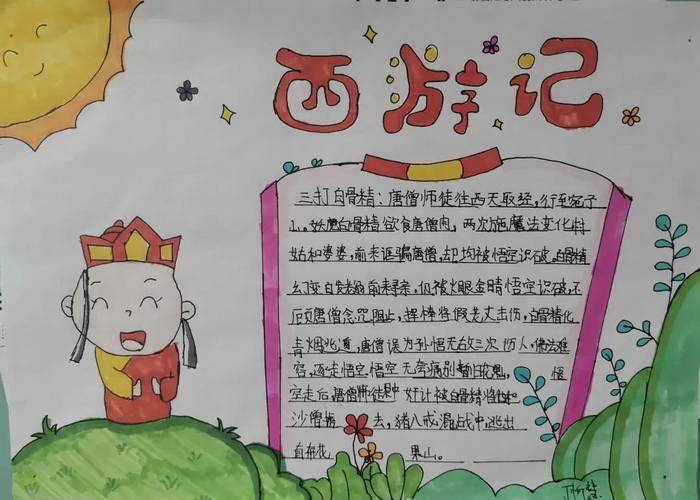 西游记
三打白骨精：唐僧师徒往西天取经，行至宛子
山。妖魔白骨精欲食唐僧肉，两次施魔法变化村
姑和婆婆，前来诓骗唐僧，却均被悟空识破。白骨精
幻变白发老翁前来寻亲，仍被火眼金睛悟空识破，不
顾唐僧念咒阻止，挥棒将假老丈击伤，白骨精化
青烟逃遁，唐僧误为孙悟无故三次伤人，佛法难
容，逐走悟空，悟空无奈痛别 悟
空走后，唐僧师徒 奸计被白骨精
沙僧 去，猪八戒混战中，逃出
自 花 果山。